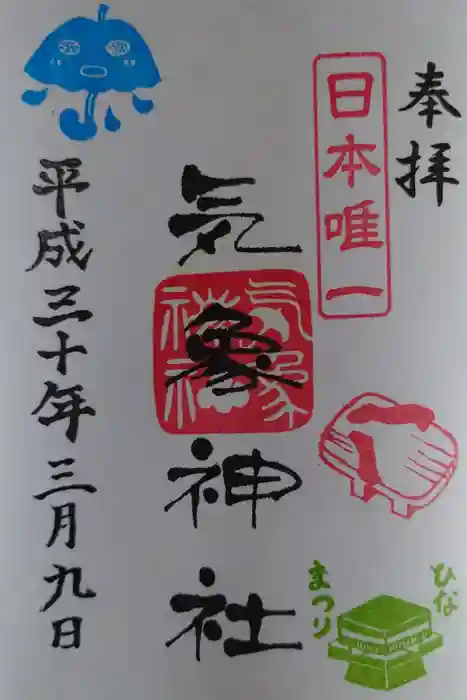 奉拝
日本唯一
気象神社
気象神社
ひな
まつり
平成三十年三月九日